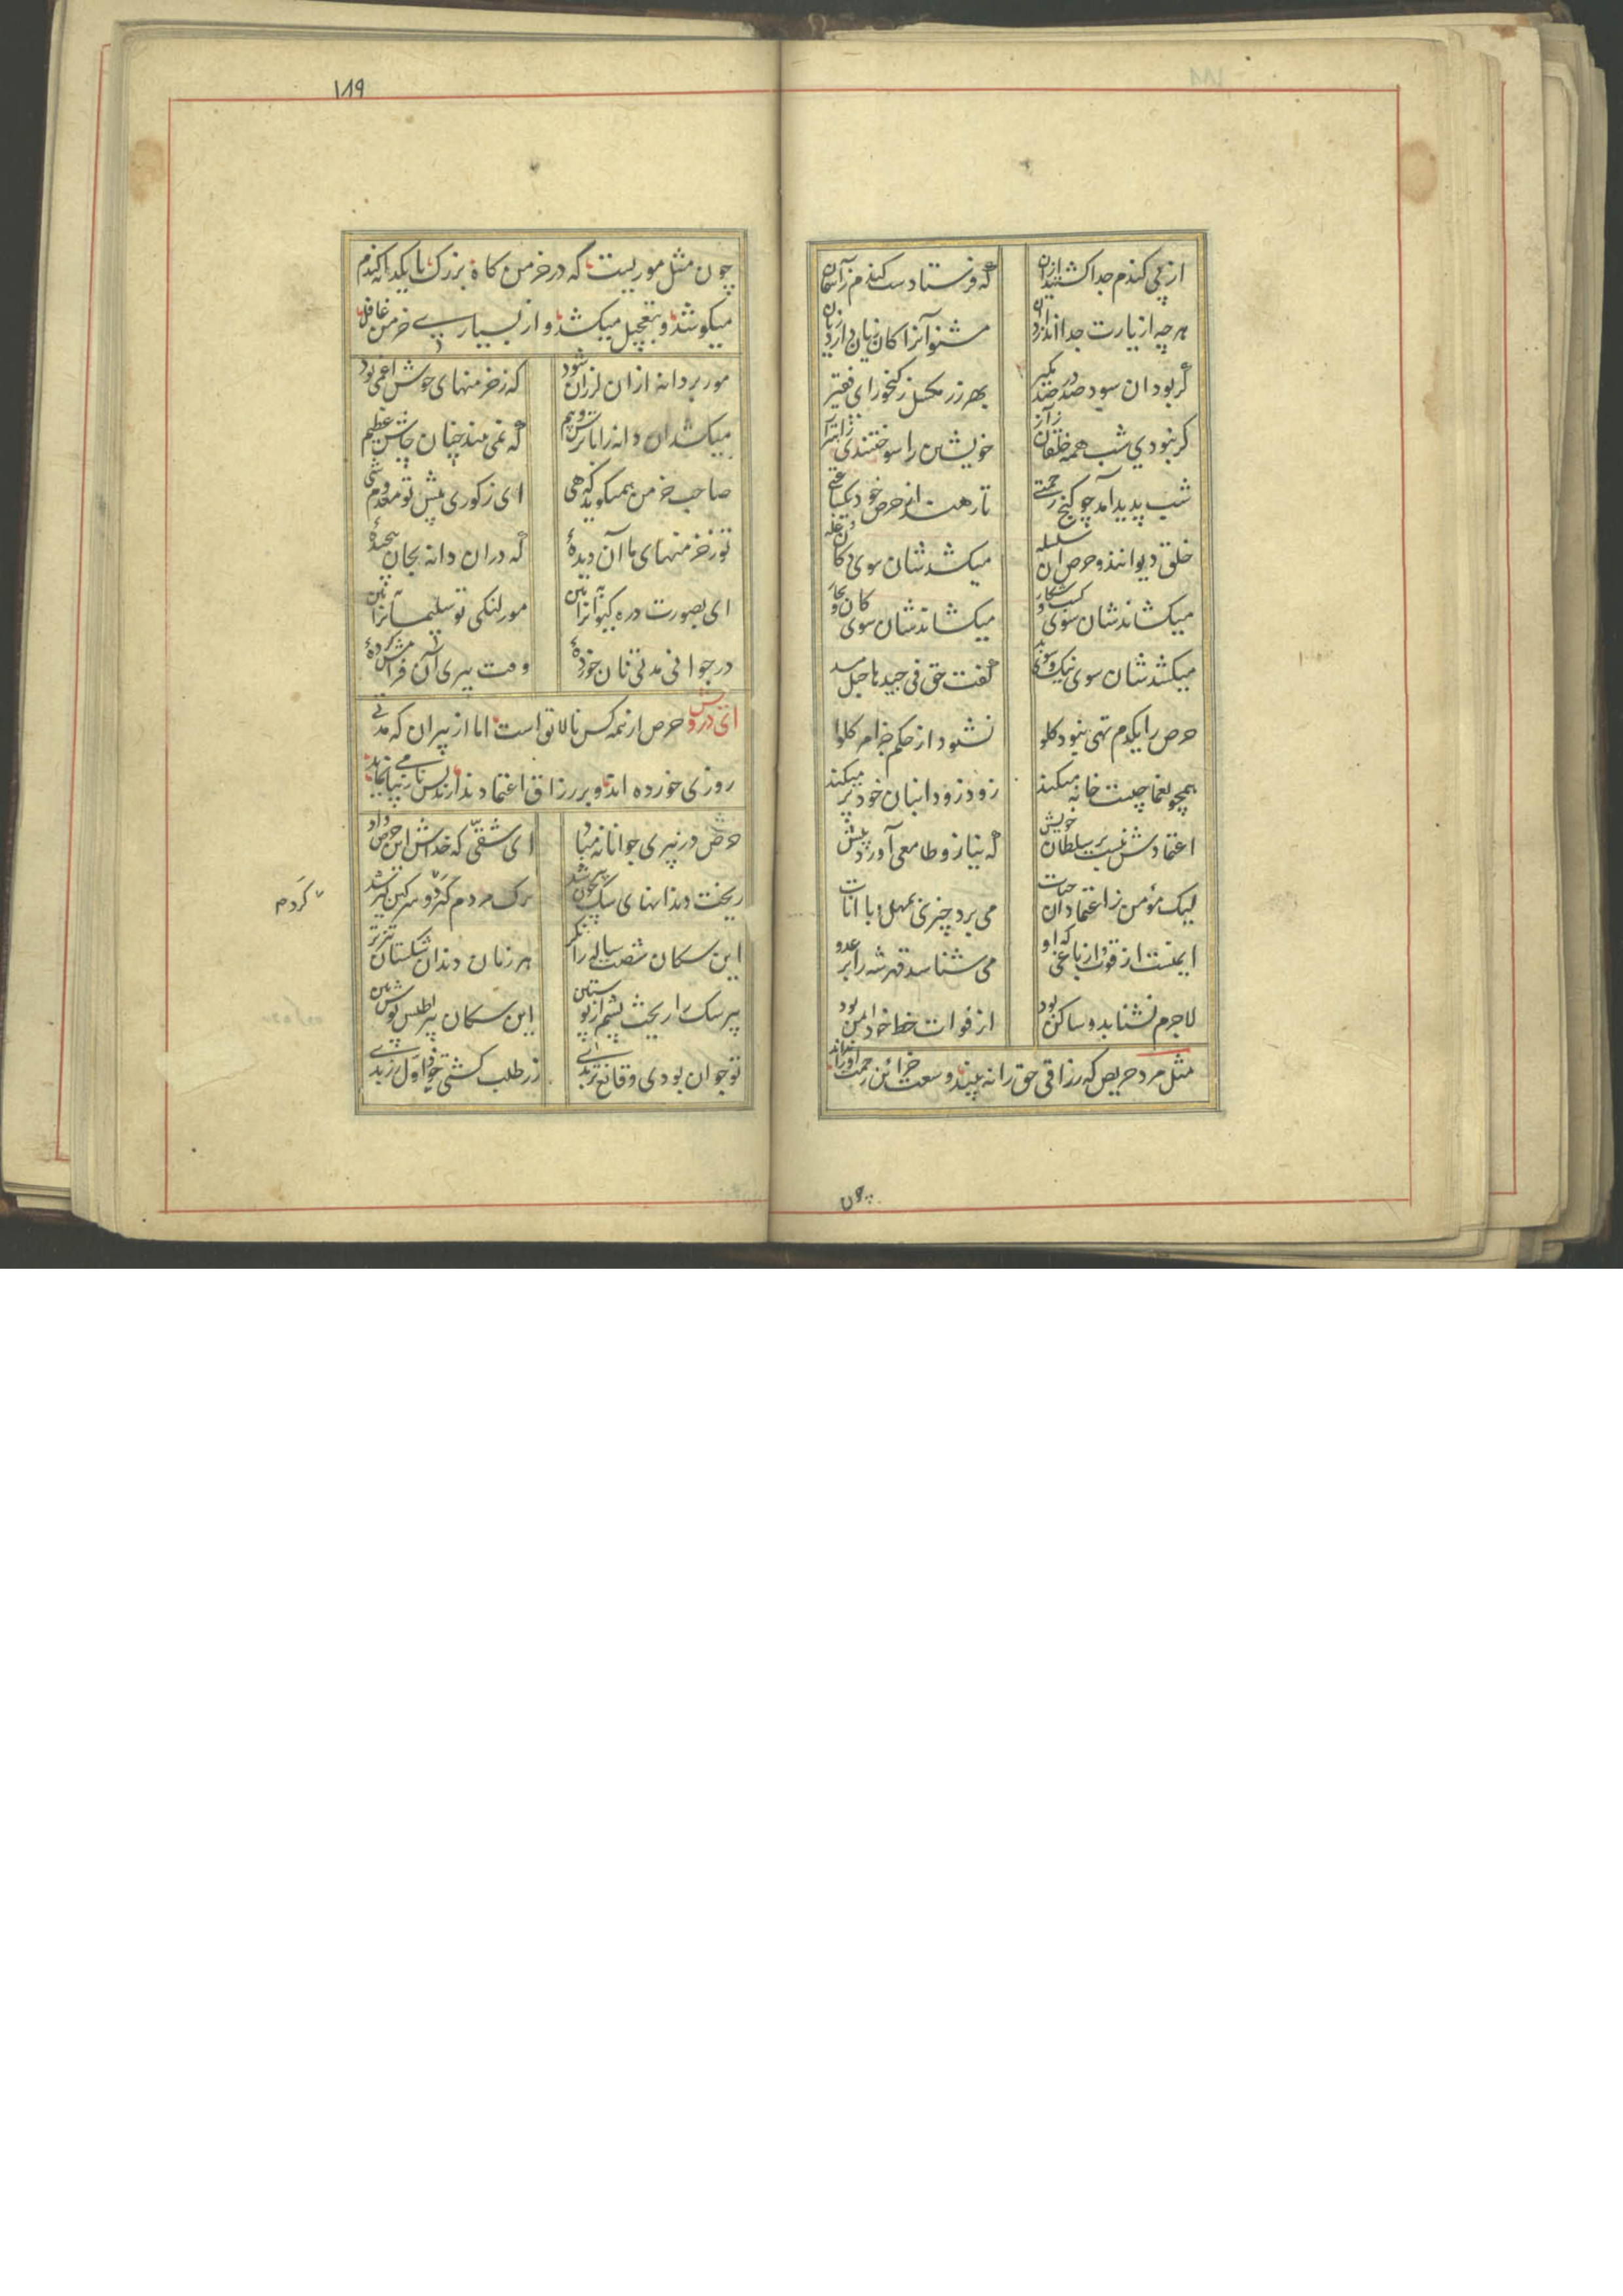 از پی گندم جدا گشتید ازان
که فرستادست گندم ز آسمان
هر چه از یارت جدا اندازد آن
مشنو آنرا کان زیان دارد زیان
گر بود آن سود صد در صد مگیر
بهر زر مگسل ز گنجور ای فقیر
گر نبودی شب همه خلقان ز آز
خویشتن را سوختندی ز اهتزاز
شب پدید آمد چو گنج رحمتی
تا رهند از حرص خود یکساعتی
خلق دیوانند و حرص آن سلسله
میکشدشان سوی دکان و غله
میکشاندشان سوی کسب و شکار
میکشاندشان سوی کان و بحار
میکشدشان سوی نیک و سوی بد
گفت حق فی جیدها حبل مسد
حرص را یکدم تهی نبود گلو
نشنود از حکم جز امر کلوا
همچو یغماچیست خانه میکند
زود زود انبان خود پر میکند
اعتمادش نیست بر سلطان خویش
که نیازد طامعی آورد پیش
لیک مؤمن ز اعتماد آن حیات
می برد چیزی بمهل و با انات
ایمنست از فوت از باغی که او
می شناسد قهر شه را بر عدو
لاجرم نشتابد و ساکن بود
از فوات حظ خود ایمن بود
مثل مرد حریص که رزاقی حق را نه بیند و سعت خزائن رحمت او را نداند
چون
۱۸۹
چون مثل موریست که در خرمن گاه بزرگ با یکدانه گندم
میکوشد و بتعجیل میکشد و از بسیاری خرمن غافل
مور بر دانه ازان لرزان شود
که ز خرمنهای خوش اعمی بود
میکشد آن دانه را با ترس و بیم
که نمی بیند چنان چاش عظیم
صاحب خرمن همیگوید که هی
ای ز کوری پیش تو معدوم شی
تو ز خرمنهای ما آن دیدهٔ
که دران دانه بجان پیچیدهٔ
ای بصورت ذره کیوانرا به بین
مور لنگی تو سلیمانرا به بین
در جوانی مدتی نان خوردهٔ
وقت پیری آن فرامش کردهٔ
ای درویش حرص از همه کس نالایق است اما از پیران که مدتی
روزی خورده اند و بر رزاق اعتماد ندارند بس نامی
حرص در پیری جوانانه مباد
ای شقیی که خداش این حرص داد
ریخت دندانهای سگ چون پیر شد
ترک مردم کرد و سرگین گیر شد
این سگان شصت ساله را نگر
هر زمان دندان سگشان تیزتر
پیر سگ را ریخت پشم از پوستین
این سگان پیر اطلس پوش بین
تو جوان بودی و قانع تر بدی
زر طلب گشتی خود اول زر بدی
کردم